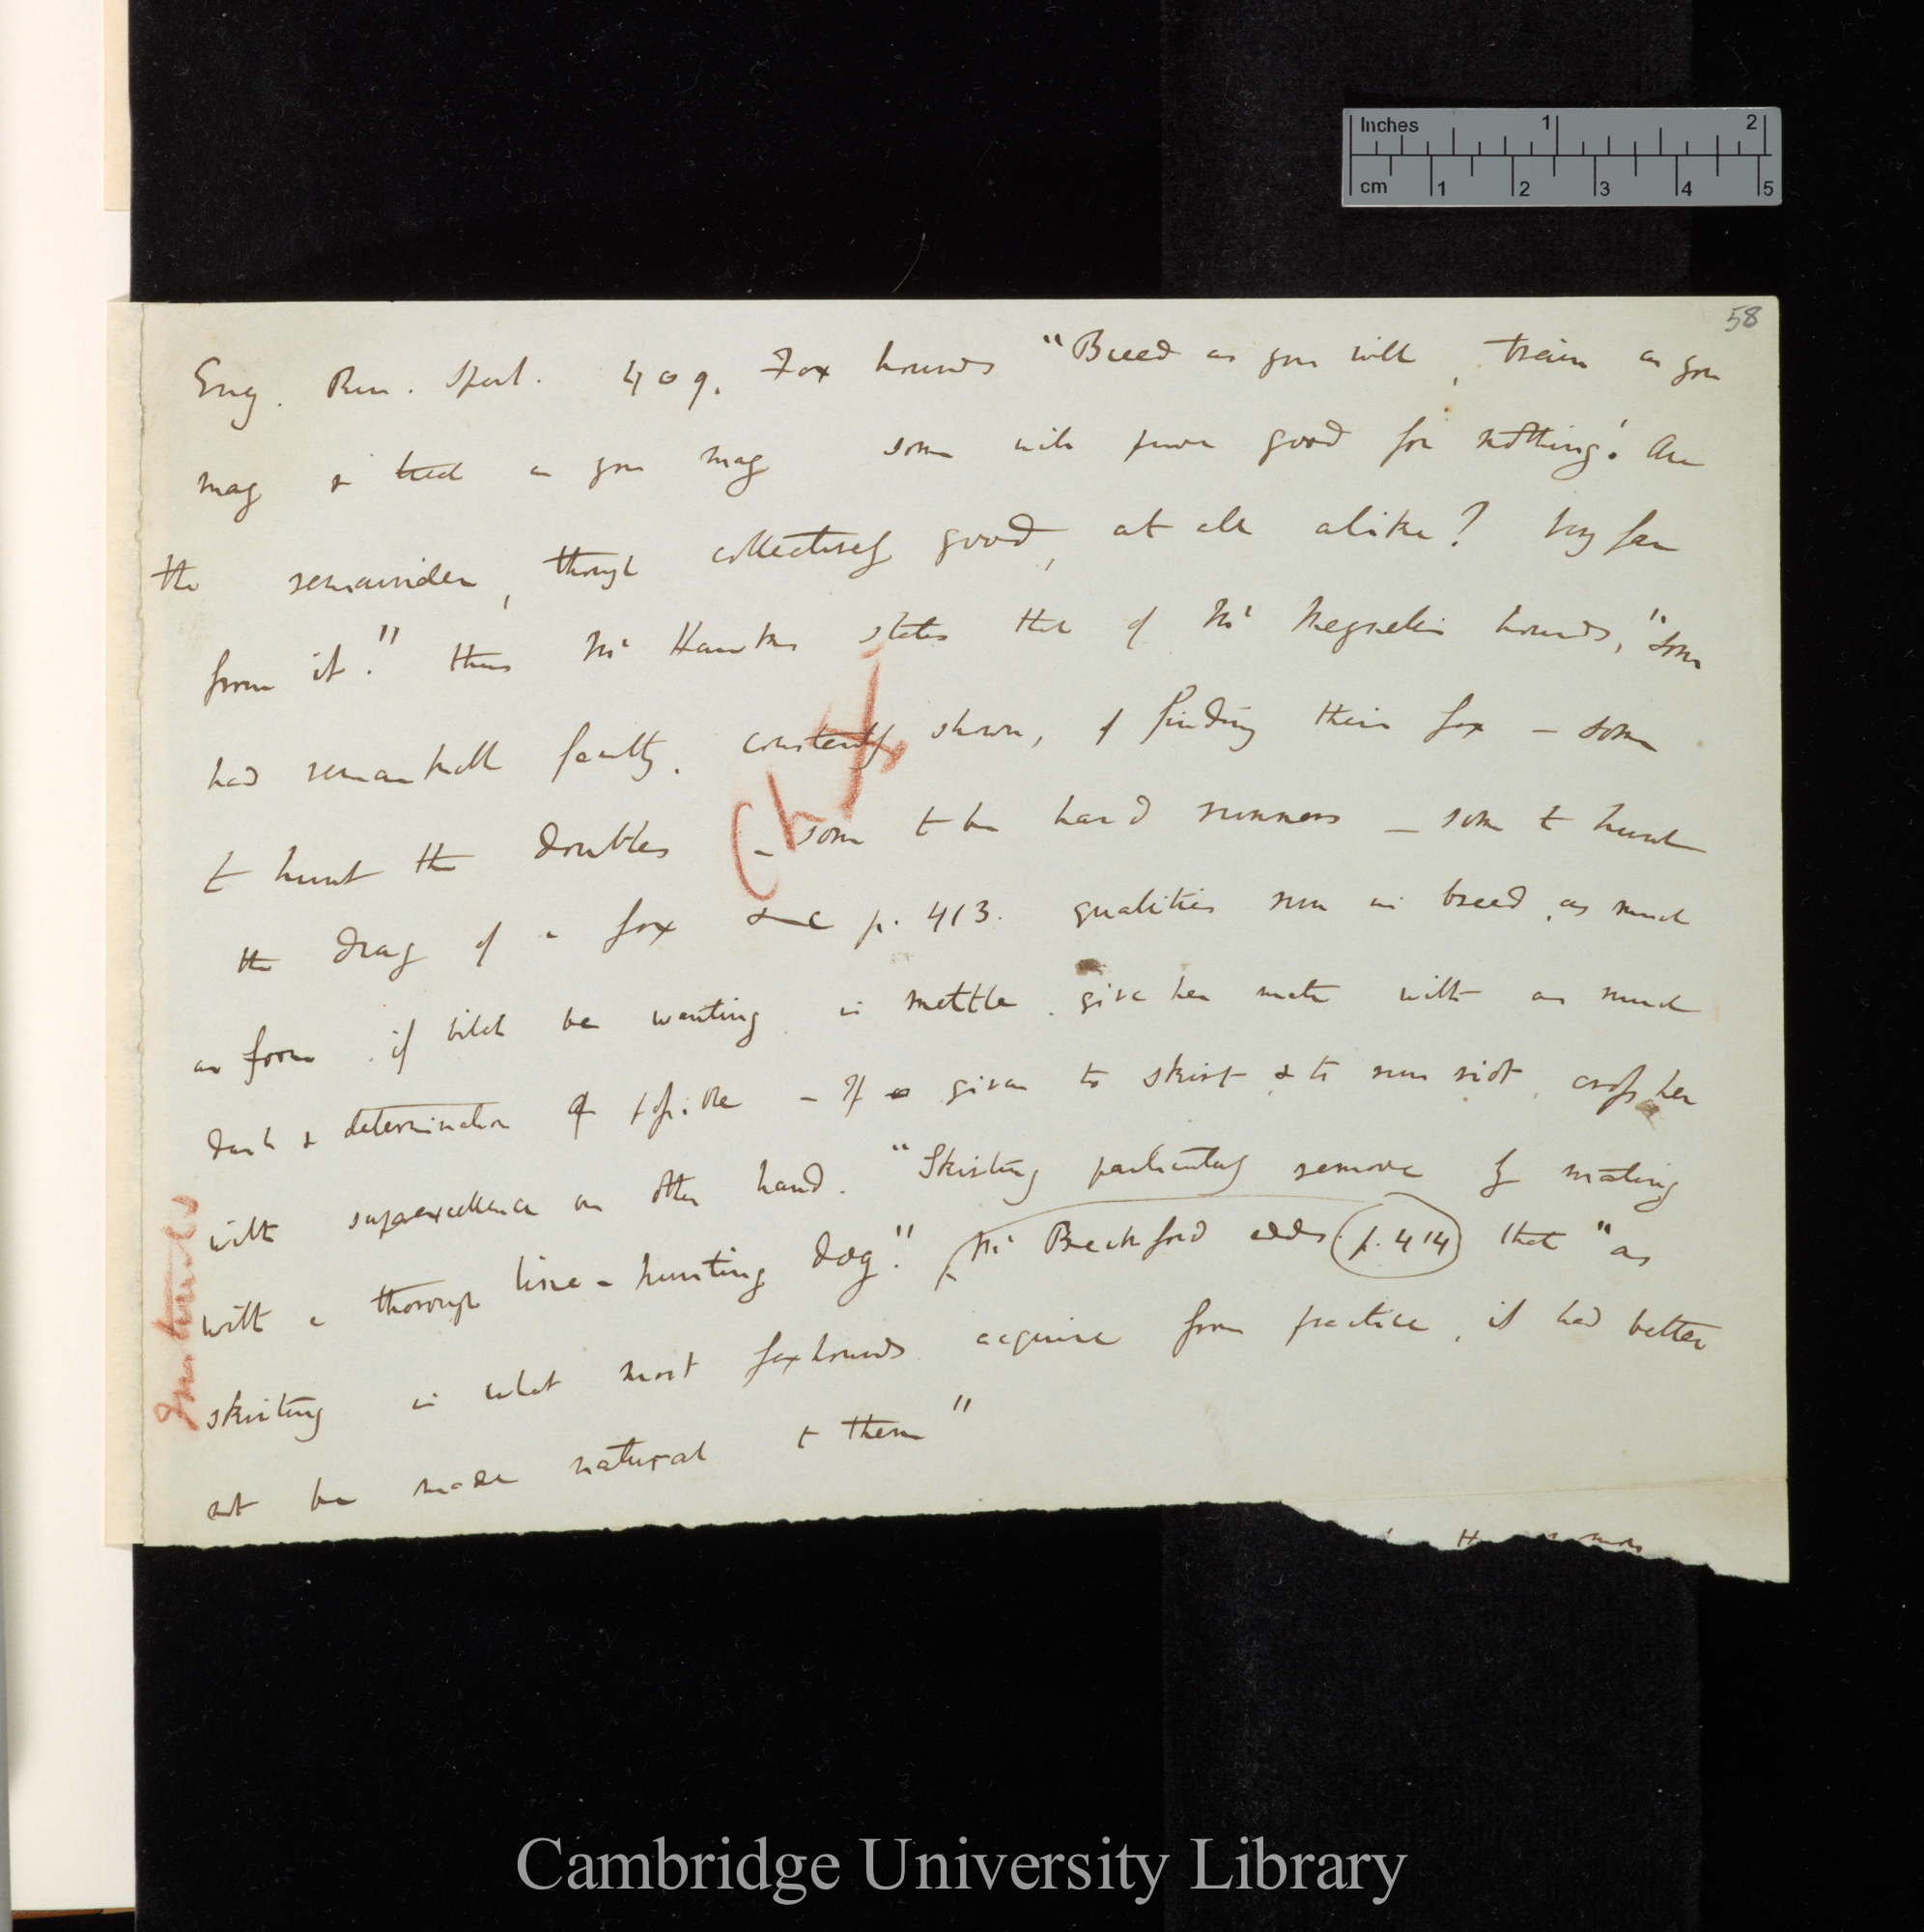 Inches 1 2
cm 1 2 3 4 5
58
Eng. Rur. Sport. 409. Fox hounds "Breed as you will, train as you
may & feed as you may some will prove good for nothing. Are
the remainder, though collectively good, at all alike? Very far
from it." thus Mr Hawkes states that of Mr Meynell's hounds, "some
had remarkable faculty, constantly shown, of finding their fox — some
to hunt the doubles — some to be hard runners — some to hunt
Ch
the drag of a fox &c p. 413. qualities run in breed as much
as form. if bitch be wanting in mettle. give her mate with as much
dash & determination as possible — If given to skirt & to run riot, cross her
with superexcellence on other hand. "Skirting particularly remove by mating
with a thorough line-hunting dog." Mr Beckford adds p. 414 that "as
skirting is what most foxhounds acquire from practice, it had better
not be made natural to them"
Cambridge University Library